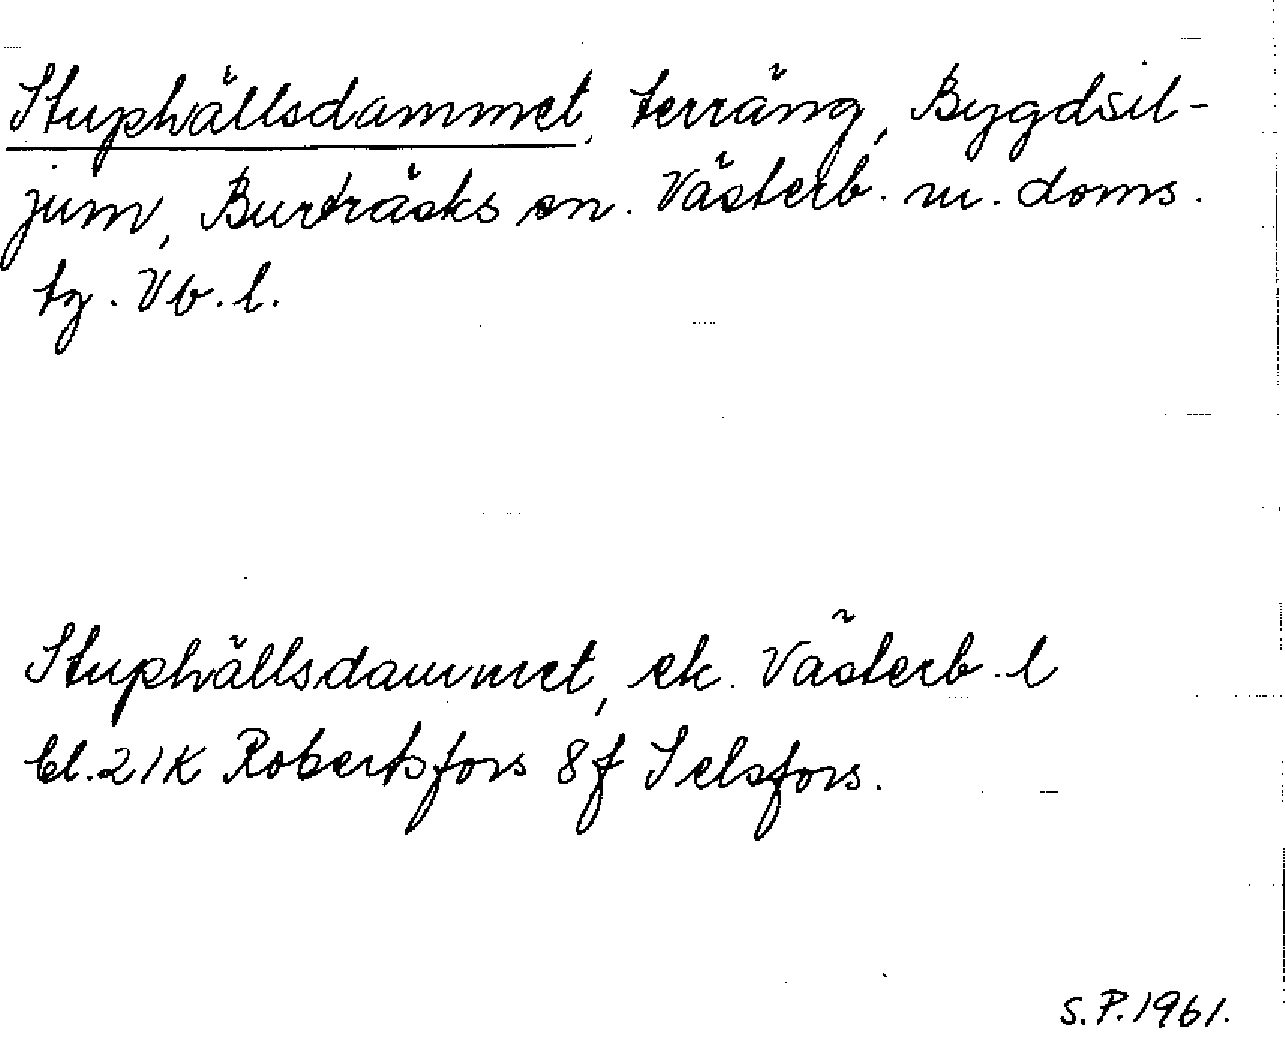 Stuphällsdammet, terräng, Bygdsil-
jum, Burträsks sn. Västerb. m. doms.
tg. Vb. l.
Stuphällsdammet, ek. Västerb. l
bl. 21K Robertsfors 8f Selsfors.
S.P. 1961.